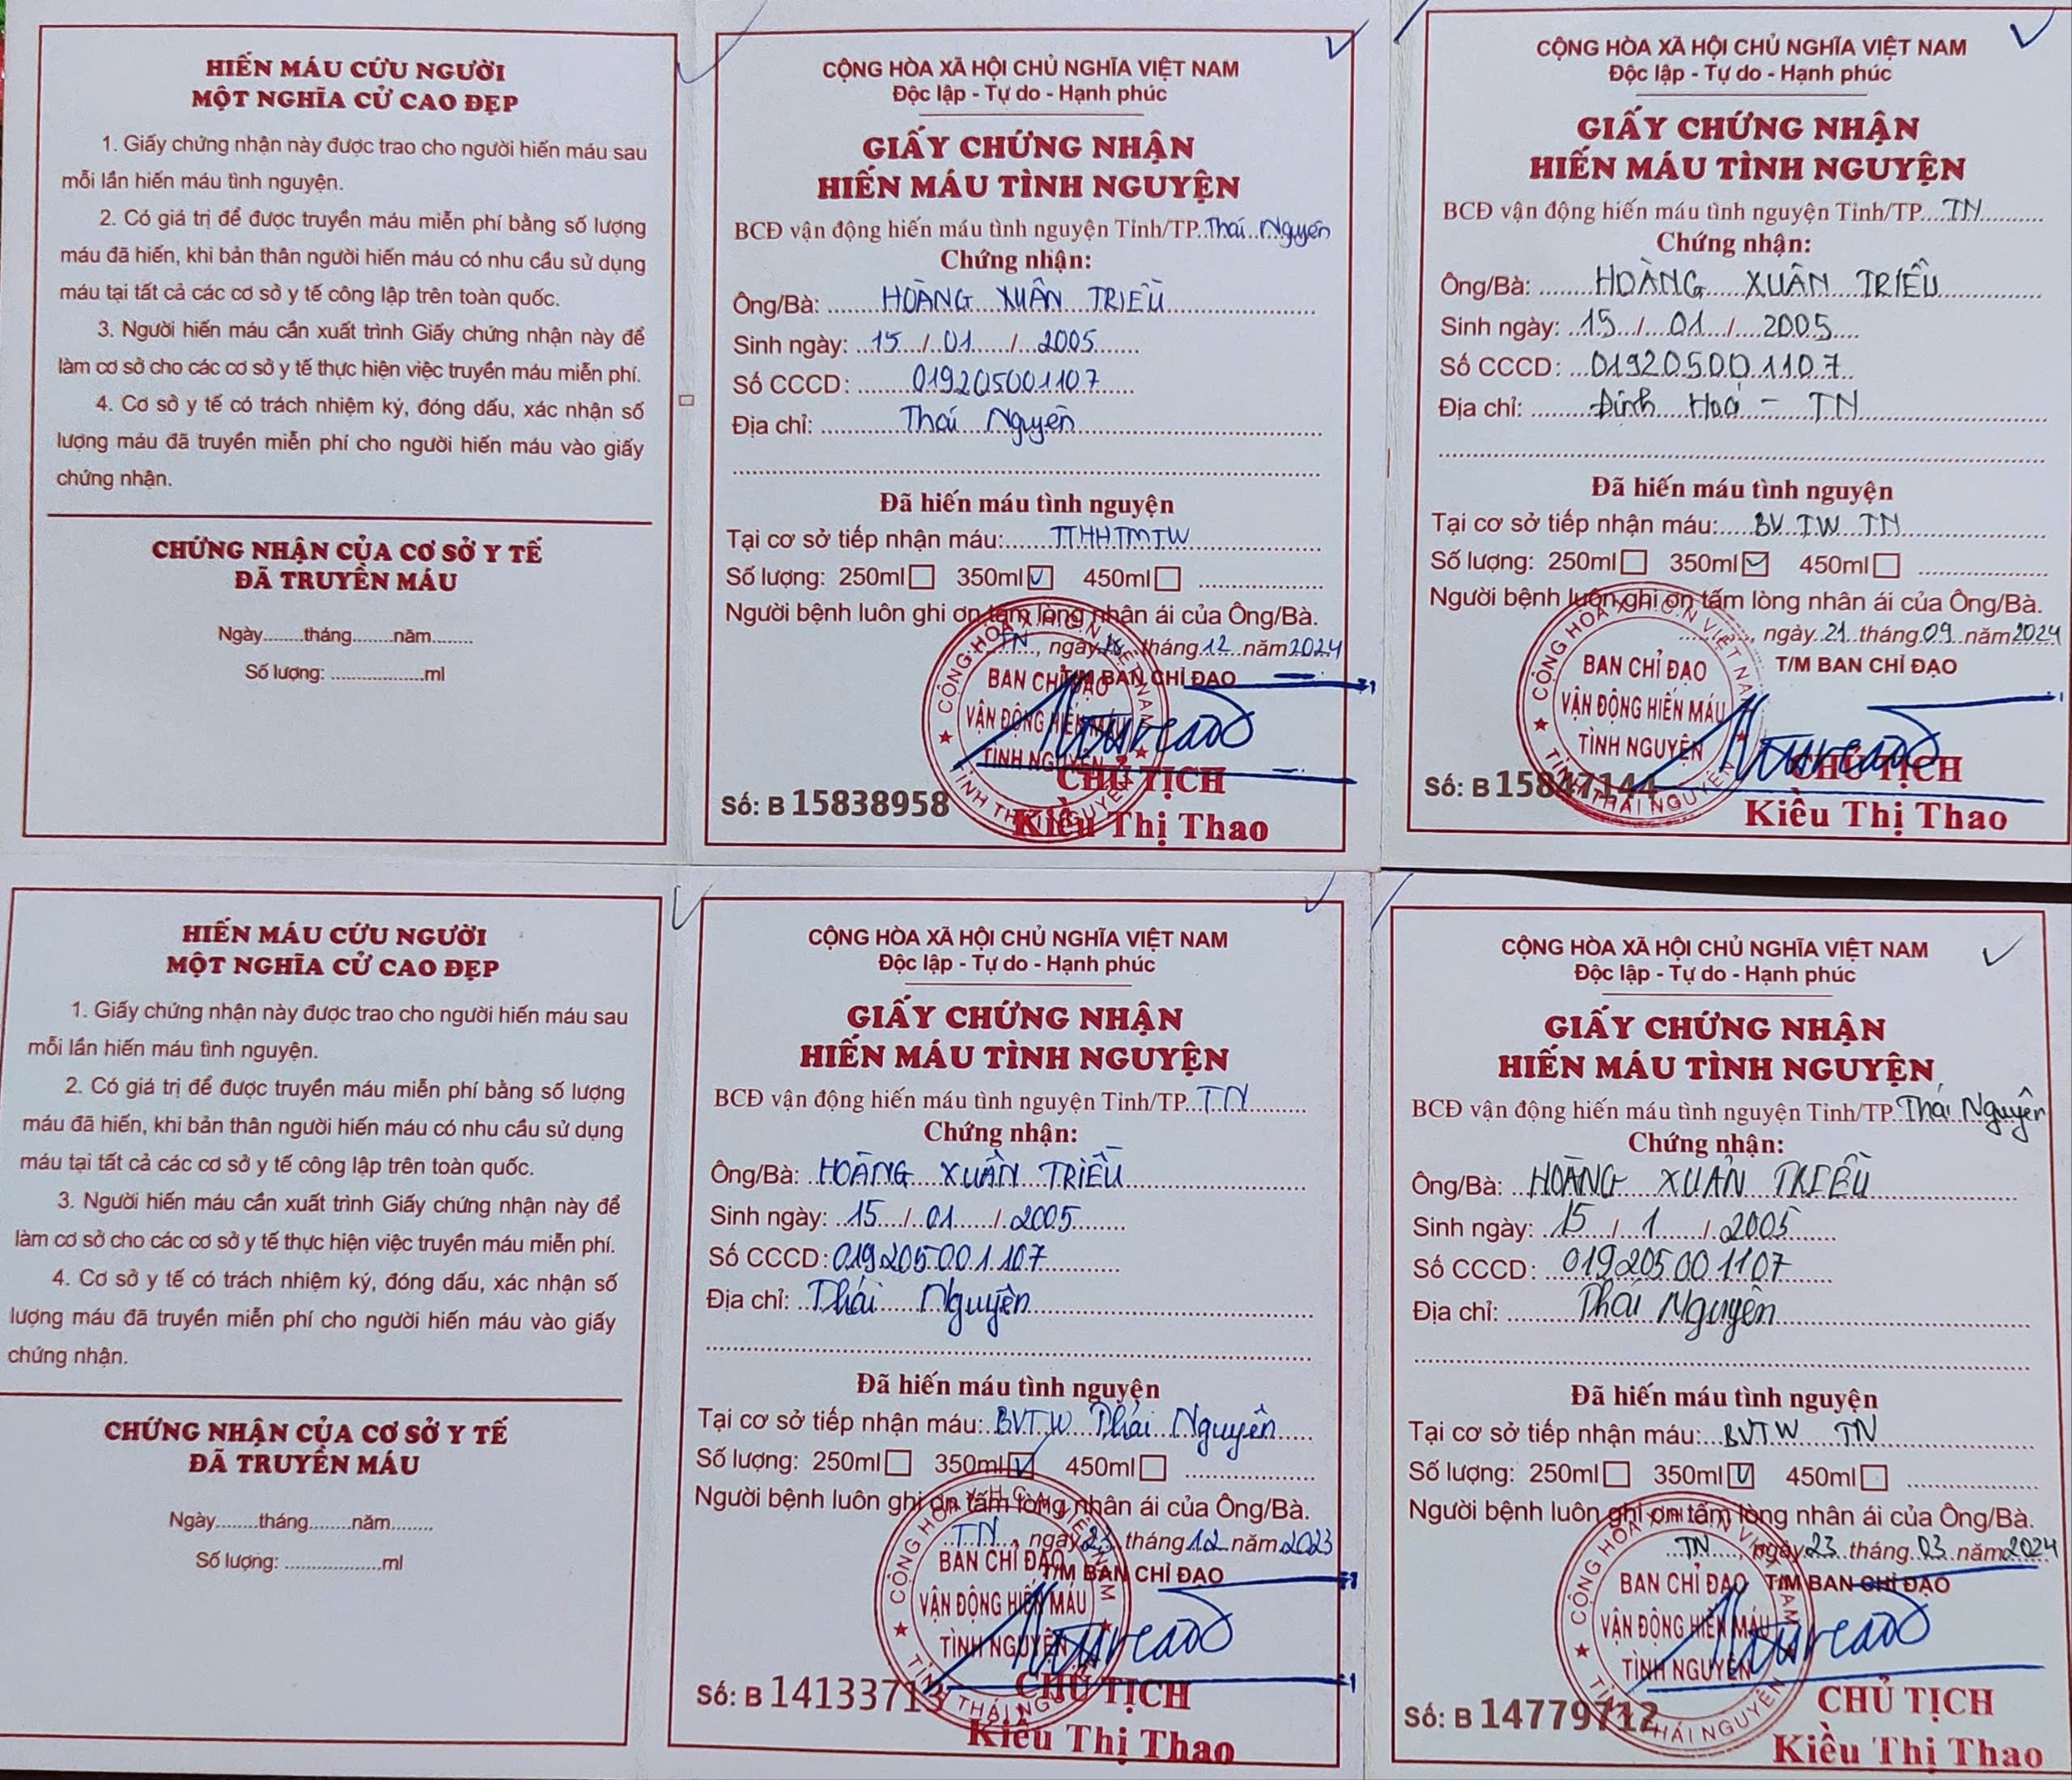 HIẾN MÁU CỨU NGƯỜI
MỘT NGHĨA CỬ CAO ĐẸP
1. Giấy chứng nhận này được trao cho người hiến máu sau
mỗi lần hiến máu tình nguyện.
2. Có giá trị để được truyền máu miễn phí bằng số lượng
máu đã hiến, khi bản thân người hiến máu có nhu cầu sử dụng
máu tại tất cả các cơ sở y tế công lập trên toàn quốc.
3. Người hiến máu cần xuất trình Giấy chứng nhận này để
làm cơ sở cho các cơ sở y tế thực hiện việc truyền máu miễn phí.
4. Cơ sở y tế có trách nhiệm ký, đóng dấu, xác nhận số
lượng máu đã truyền miễn phí cho người hiến máu vào giấy
chứng nhận.
CHỨNG NHẬN CỦA CƠ SỞ Y TẾ
ĐÃ TRUYỀN MÁU
Ngày........tháng........năm........
Số lượng: ..................ml
CỘNG HÒA XÃ HỘI CHỦ NGHĨA VIỆT NAM
Độc lập - Tự do - Hạnh phúc
GIẤY CHỨNG NHẬN
HIẾN MÁU TÌNH NGUYỆN
BCĐ vận động hiến máu tình nguyện Tỉnh/TP Thái Nguyên
Chứng nhận:
Ông/Bà: HOÀNG XUÂN TRIỀU
Sinh ngày: 15 / 01 / 2005
Số CCCD: 019205001107
Địa chỉ: Thái Nguyên
Đã hiến máu tình nguyện
Tại cơ sở tiếp nhận máu: TTHHTMTW
Số lượng: 250ml 350ml 450ml
Người bệnh luôn ghi ơn tấm lòng nhân ái của Ông/Bà.
TN, ngày tháng 12 năm 2024
T/M BAN CHỈ ĐẠO
BAN CHỈ ĐẠO
VẬN ĐỘNG HIẾN MÁU
TÌNH NGUYỆN
CHỦ TỊCH
Số: B 15838958
Kiều Thị Thao
CỘNG HÒA XÃ HỘI CHỦ NGHĨA VIỆT NAM
Độc lập - Tự do - Hạnh phúc
GIẤY CHỨNG NHẬN
HIẾN MÁU TÌNH NGUYỆN
BCĐ vận động hiến máu tình nguyện Tỉnh/TP TN
Chứng nhận:
Ông/Bà: HOÀNG XUÂN TRIỀU
Sinh ngày: 15 / 01 / 2005
Số CCCD: 019205001107
Địa chỉ: Định Hoá - TN
Đã hiến máu tình nguyện
Tại cơ sở tiếp nhận máu: BV TW TN
Số lượng: 250ml 350ml 450ml
Người bệnh luôn ghi ơn tấm lòng nhân ái của Ông/Bà.
ngày 21 tháng 09 năm 2024
T/M BAN CHỈ ĐẠO
BAN CHỈ ĐẠO
VẬN ĐỘNG HIẾN MÁU
TÌNH NGUYỆN
CHỦ TỊCH
Số: B 15847144
Kiều Thị Thao
HIẾN MÁU CỨU NGƯỜI
MỘT NGHĨA CỬ CAO ĐẸP
1. Giấy chứng nhận này được trao cho người hiến máu sau
mỗi lần hiến máu tình nguyện.
2. Có giá trị để được truyền máu miễn phí bằng số lượng
máu đã hiến, khi bản thân người hiến máu có nhu cầu sử dụng
máu tại tất cả các cơ sở y tế công lập trên toàn quốc.
3. Người hiến máu cần xuất trình Giấy chứng nhận này để
làm cơ sở cho các cơ sở y tế thực hiện việc truyền máu miễn phí.
4. Cơ sở y tế có trách nhiệm ký, đóng dấu, xác nhận số
lượng máu đã truyền miễn phí cho người hiến máu vào giấy
chứng nhận.
CHỨNG NHẬN CỦA CƠ SỞ Y TẾ
ĐÃ TRUYỀN MÁU
Ngày........tháng........năm........
Số lượng: ..................ml
CỘNG HÒA XÃ HỘI CHỦ NGHĨA VIỆT NAM
Độc lập - Tự do - Hạnh phúc
GIẤY CHỨNG NHẬN
HIẾN MÁU TÌNH NGUYỆN
BCĐ vận động hiến máu tình nguyện Tỉnh/TP TN
Chứng nhận:
Ông/Bà: HOÀNG XUÂN TRIỀU
Sinh ngày: 15 / 01 / 2005
Số CCCD: 019205001107
Địa chỉ: Thái Nguyên
Đã hiến máu tình nguyện
Tại cơ sở tiếp nhận máu: BVTW Thái Nguyên
Số lượng: 250ml 350ml 450ml
Người bệnh luôn ghi ơn tấm lòng nhân ái của Ông/Bà.
TN, ngày 23 tháng 12 năm 2023
T/M BAN CHỈ ĐẠO
BAN CHỈ ĐẠO
VẬN ĐỘNG HIẾN MÁU
TÌNH NGUYỆN
CHỦ TỊCH
Số: B 14133713
Kiều Thị Thao
CỘNG HÒA XÃ HỘI CHỦ NGHĨA VIỆT NAM
Độc lập - Tự do - Hạnh phúc
GIẤY CHỨNG NHẬN
HIẾN MÁU TÌNH NGUYỆN
BCĐ vận động hiến máu tình nguyện Tỉnh/TP Thái Nguyên
Chứng nhận:
Ông/Bà: HOÀNG XUÂN TRIỀU
Sinh ngày: 15 / 1 / 2005
Số CCCD: 019205001107
Địa chỉ: Thái Nguyên
Đã hiến máu tình nguyện
Tại cơ sở tiếp nhận máu: BVTW TN
Số lượng: 250ml 350ml 450ml
Người bệnh luôn ghi ơn tấm lòng nhân ái của Ông/Bà.
TN, ngày 23 tháng 03 năm 2024
T/M BAN CHỈ ĐẠO
BAN CHỈ ĐẠO
VẬN ĐỘNG HIẾN MÁU
TÌNH NGUYỆN
CHỦ TỊCH
Số: B 14779712
Kiều Thị Thao